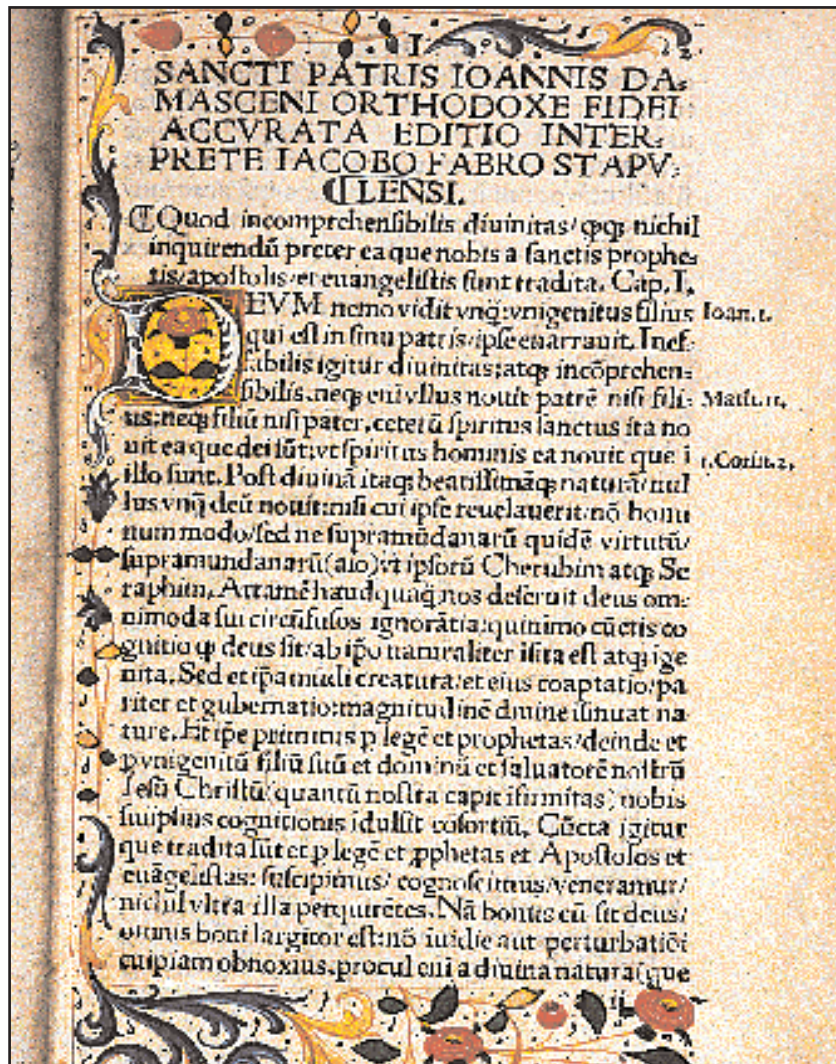 I
SANCTI PATRIS IOANNIS DA-
MASCENI ORTHODOXE FIDEI
ACCVRATA EDITIO INTER-
PRETE IACOBO FABRO STAPV-
LENSI.
¶Quod incomprehensibilis diuinitas/ ꝙꝗ nichil
inquirendū preter ea que nobis a sanctis prophe-
tis/apostolis/et euangelistis sunt tradita. Cap. I.
DEVM nemo vidit vnꝗ: vnigenitus filius
Ioan.1.
qui est in sinu patris/ipse enarrauit. Inef-
fabilis igitur diuinitas: atqꝫ incōprehen-
sibilis. neqꝫ eni vllus nouit patrē nisi fili-
Math.11.
us: neqꝫ filiū nisi pater. ceterū spiritus sanctus ita no
uit ea que dei sūt: vt spiritus hominis ea nouit que i
1.Corin.2.
illo sunt. Post diuinā itaqꝫ beatissimāqꝫ naturā/nul
lus vnꝗ deū nouit: nisi cui ipse reuelauerit/nō homi
num modo/sed ne supramūdanarū quidē virtutū/
supramundanarū(aio)vt ipsorū Cherubim atqꝫ Se
raphim. Attamē haudquaꝗ nos deseruit deus om-
nimoda sui circūfusos ignorātia: quinimo cūctis co
gnitio ꝙ deus sit/ab ipo naturaliter isita est atqꝫ ige
nita. Sed et ipa mūdi creatura/et eius coaptatio/pa
riter et gubernatio: magnitudinē diuine isinuat na
ture. Et ipe primitus ꝑ legē et prophetas/deinde et
ꝑ vnigenitū filiū suū et dominū et saluatorē nostrū
Iesū Christū(quantū nostra capit ifirmitas) nobis
suiipsius cognitionis idulsit cōsortiū. Cūcta igitur
que tradita sūt et ꝑ legē et ꝓphetas et Apostolos et
euāgelistas: suscipimus/ cognoscimus/veneramur/
nichil vltra illa perquirētes. Nā bonus cū sit deus/
omnis boni largitor est: nō iuidie aut perturbatiōi
cuipiam obnoxius. procul eni a diuina natura(que